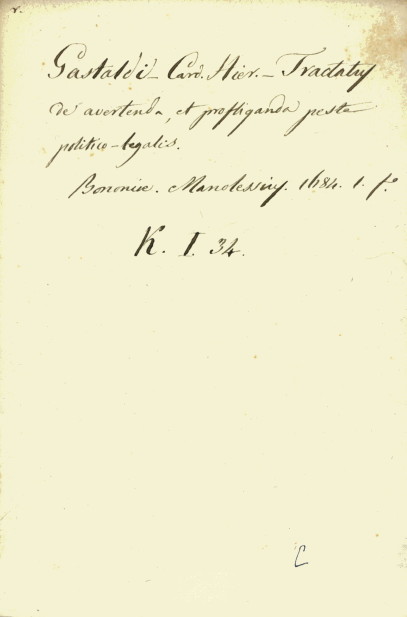 v.
Gastaldi - Card. Hier. - Tractatus
de avertenda, et profliganda peste
politico-legalis.
Bononiæ. Manolessius. 1684. 1. f.
K. I. 34.
C